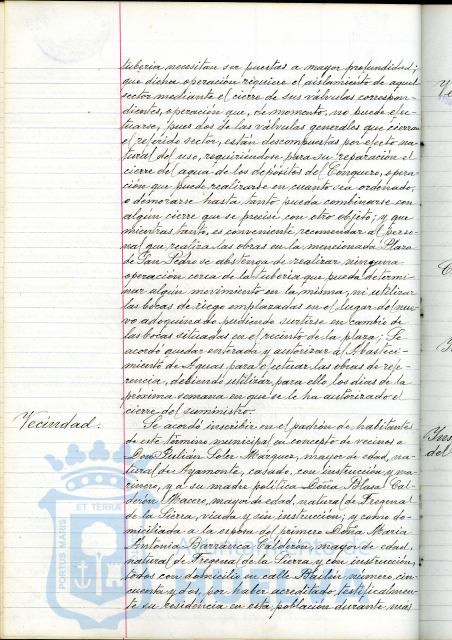 tuberia necesitan ser puestas a mayor profundidad;
que dicha operación requiere el aislamiento de aquel
sector mediante el cierre de sus válvulas correspon-
dientes, operación que, de momento, no puede efec-
tuarse, pues dos de las válvulas generales que cierran
el referido sector, están descompuestas por efecto na-
tural del uso, requiriéndose para su reparación el
cierre del agua de los depósitos del Conquero, opera-
ción que puede realizarse en cuanto sea ordenado,
o demorarse hasta tanto pueda combinarse con
algún cierre que se precise con otro objeto; y que
mientras tanto, es conveniente recomendar al perso-
nal que realiza las obras en la mencionada Plaza
de San Pedro se abstenga de realizar ninguna
operación cerca de la tuberia que pueda determi-
nar algún movimiento en la misma, ni utilizar
las bocas de riego emplazadas en el lugar del nue-
vo adoquinado pudiendo surtirse en cambio de
las bocas situadas en el recinto de la plaza; Se
acordó quedar enterada y autorizar al Abasteci-
miento de Aguas para efectuar las obras de refe-
rencia, debiendo utilizar para ello los dias de la
próxima semana en que se le ha autorizado el
cierre del suministro.
Vecindad.
Se acordó inscribir en el padrón de habitantes
de este término municipal en concepto de vecinos a
Don Julián Soler Márquez, mayor de edad, na-
tural de Ayamonte, casado, con instrucción, y ma-
rinero, y a su madre politica Doña Blasa Cal-
derón Macero, mayor de edad, natural de Fregenal
de la Sierra, viuda y sin instrucción; y como do-
miciliada a la esposa del primero Doña Maria
Antonia Barranca Calderón, mayor de edad,
natural de Fregenal de la Sierra y con instrucción,
todos con domicilio en calle Bailén, número cin-
cuenta y dos, por haber acreditado, testificalmen-
te su residencia en esta población durante mas
PORTUS MARIS
ET TERRÆ